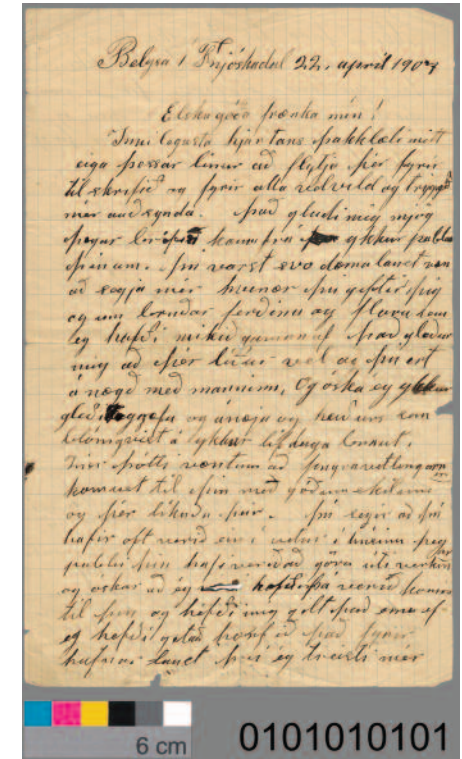 Belgsá í Fnjóskadal 22. apríl 1907
Elsku góða frænka mín!
Innilegasta hjartans þakklæti mitt
eiga þessar línur að flytja þér fyrir
tilskrifið og fyrir alla velvild og tryggð
mér auðsýnda. Það gladdi mig mjög
þegar bréfið kom frá ykkur pabba
þínum. Þú varst svo dæmalaust væn
að segja mér hvenær þú giftir þig
og um ferðina og fleira sem
eg hafði mikið gaman af. Það gleður
mig að þér líður vel að þú ert
ánægð með manninn, Og óska ég ykkur
gleði og gæfa og ánægja og heiður
blómgvist á ykkar lífdaga braut.
þótti væntum að fingravetlingarnir
komust til þín með góðum skilum
og þér líkaði þeir. Þú segir að þú
hafir oft verið ein í húsinu þegar
pabbi þinn hafi verið að göra útiverkin
og óskar að ég hefði þá verið komin
til þín og hefði mig gilt það sama ef
eg hefði getað það fyrir
því ég treisti mér
6 cm
0101010101